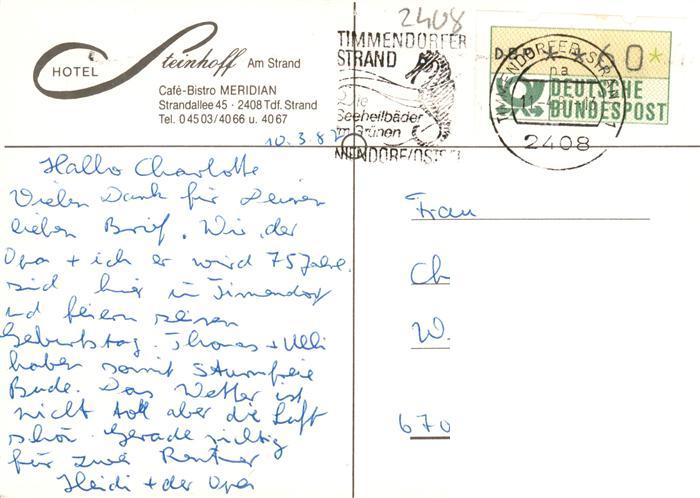 2408
HOTEL Steinhoff Am Strand
Café-Bistro MERIDIAN
Strandallee 45 · 2408 Tdf. Strand
Tel. 0 45 03 / 40 66 u. 40 67
TIMMENDORFER
STRAND
Die
Seeheilbäder
im Grünen
NIENDORF/OSTS
DBP * * 60 *
DEUTSCHE
BUNDESPOST
TIMMENDORFER STRAND
na
2408
10.3.87
Hallo Charlotte
Vielen Dank für Deinen
lieben Brief. Wir, der
Opa + ich er wird 75 Jahre.
sind hier in Timendorf
und feiern seinen
Geburtstag. Thomas + Ulli
haben somit Sturmfreie
Bude. Das Wetter ist
nicht toll aber die Luft
schön. Gerade richtig
für zwei Rentner
Heidi + der Opa
Frau
Ch
W.
670